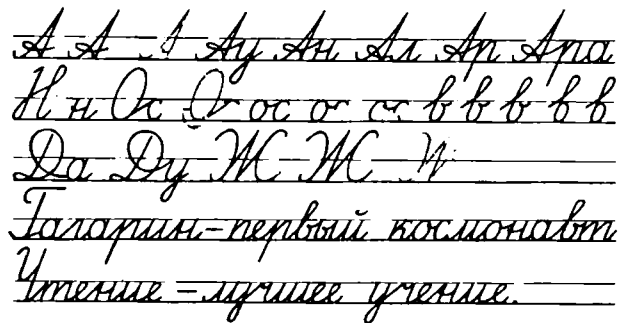 А А А Ау Ан Ал Ар Ара
Н н Ос О ос о с в в в в в
Да Ду Ж Ж
Гагарин – первый космонавт
Чтение – лучшее учение.